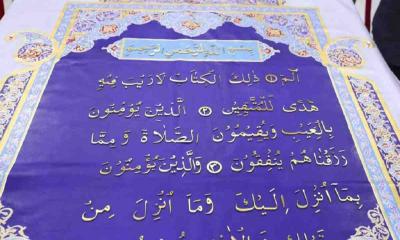 بِسْمِ اللَّهِ الرَّحْمَٰنِ الرَّحِيمِ
الٓمٓ ١ ذَٰلِكَ الْكِتَابُ لَا رَيْبَ فِيهِ
هُدًى لِلْمُتَّقِينَ ٢ الَّذِينَ يُؤْمِنُونَ
بِالْغَيْبِ وَيُقِيمُونَ الصَّلَاةَ وَمِمَّا
رَزَقْنَاهُمْ يُنْفِقُونَ ٣ وَالَّذِينَ يُؤْمِنُونَ
بِمَا أُنْزِلَ إِلَيْكَ وَمَا أُنْزِلَ مِنْ